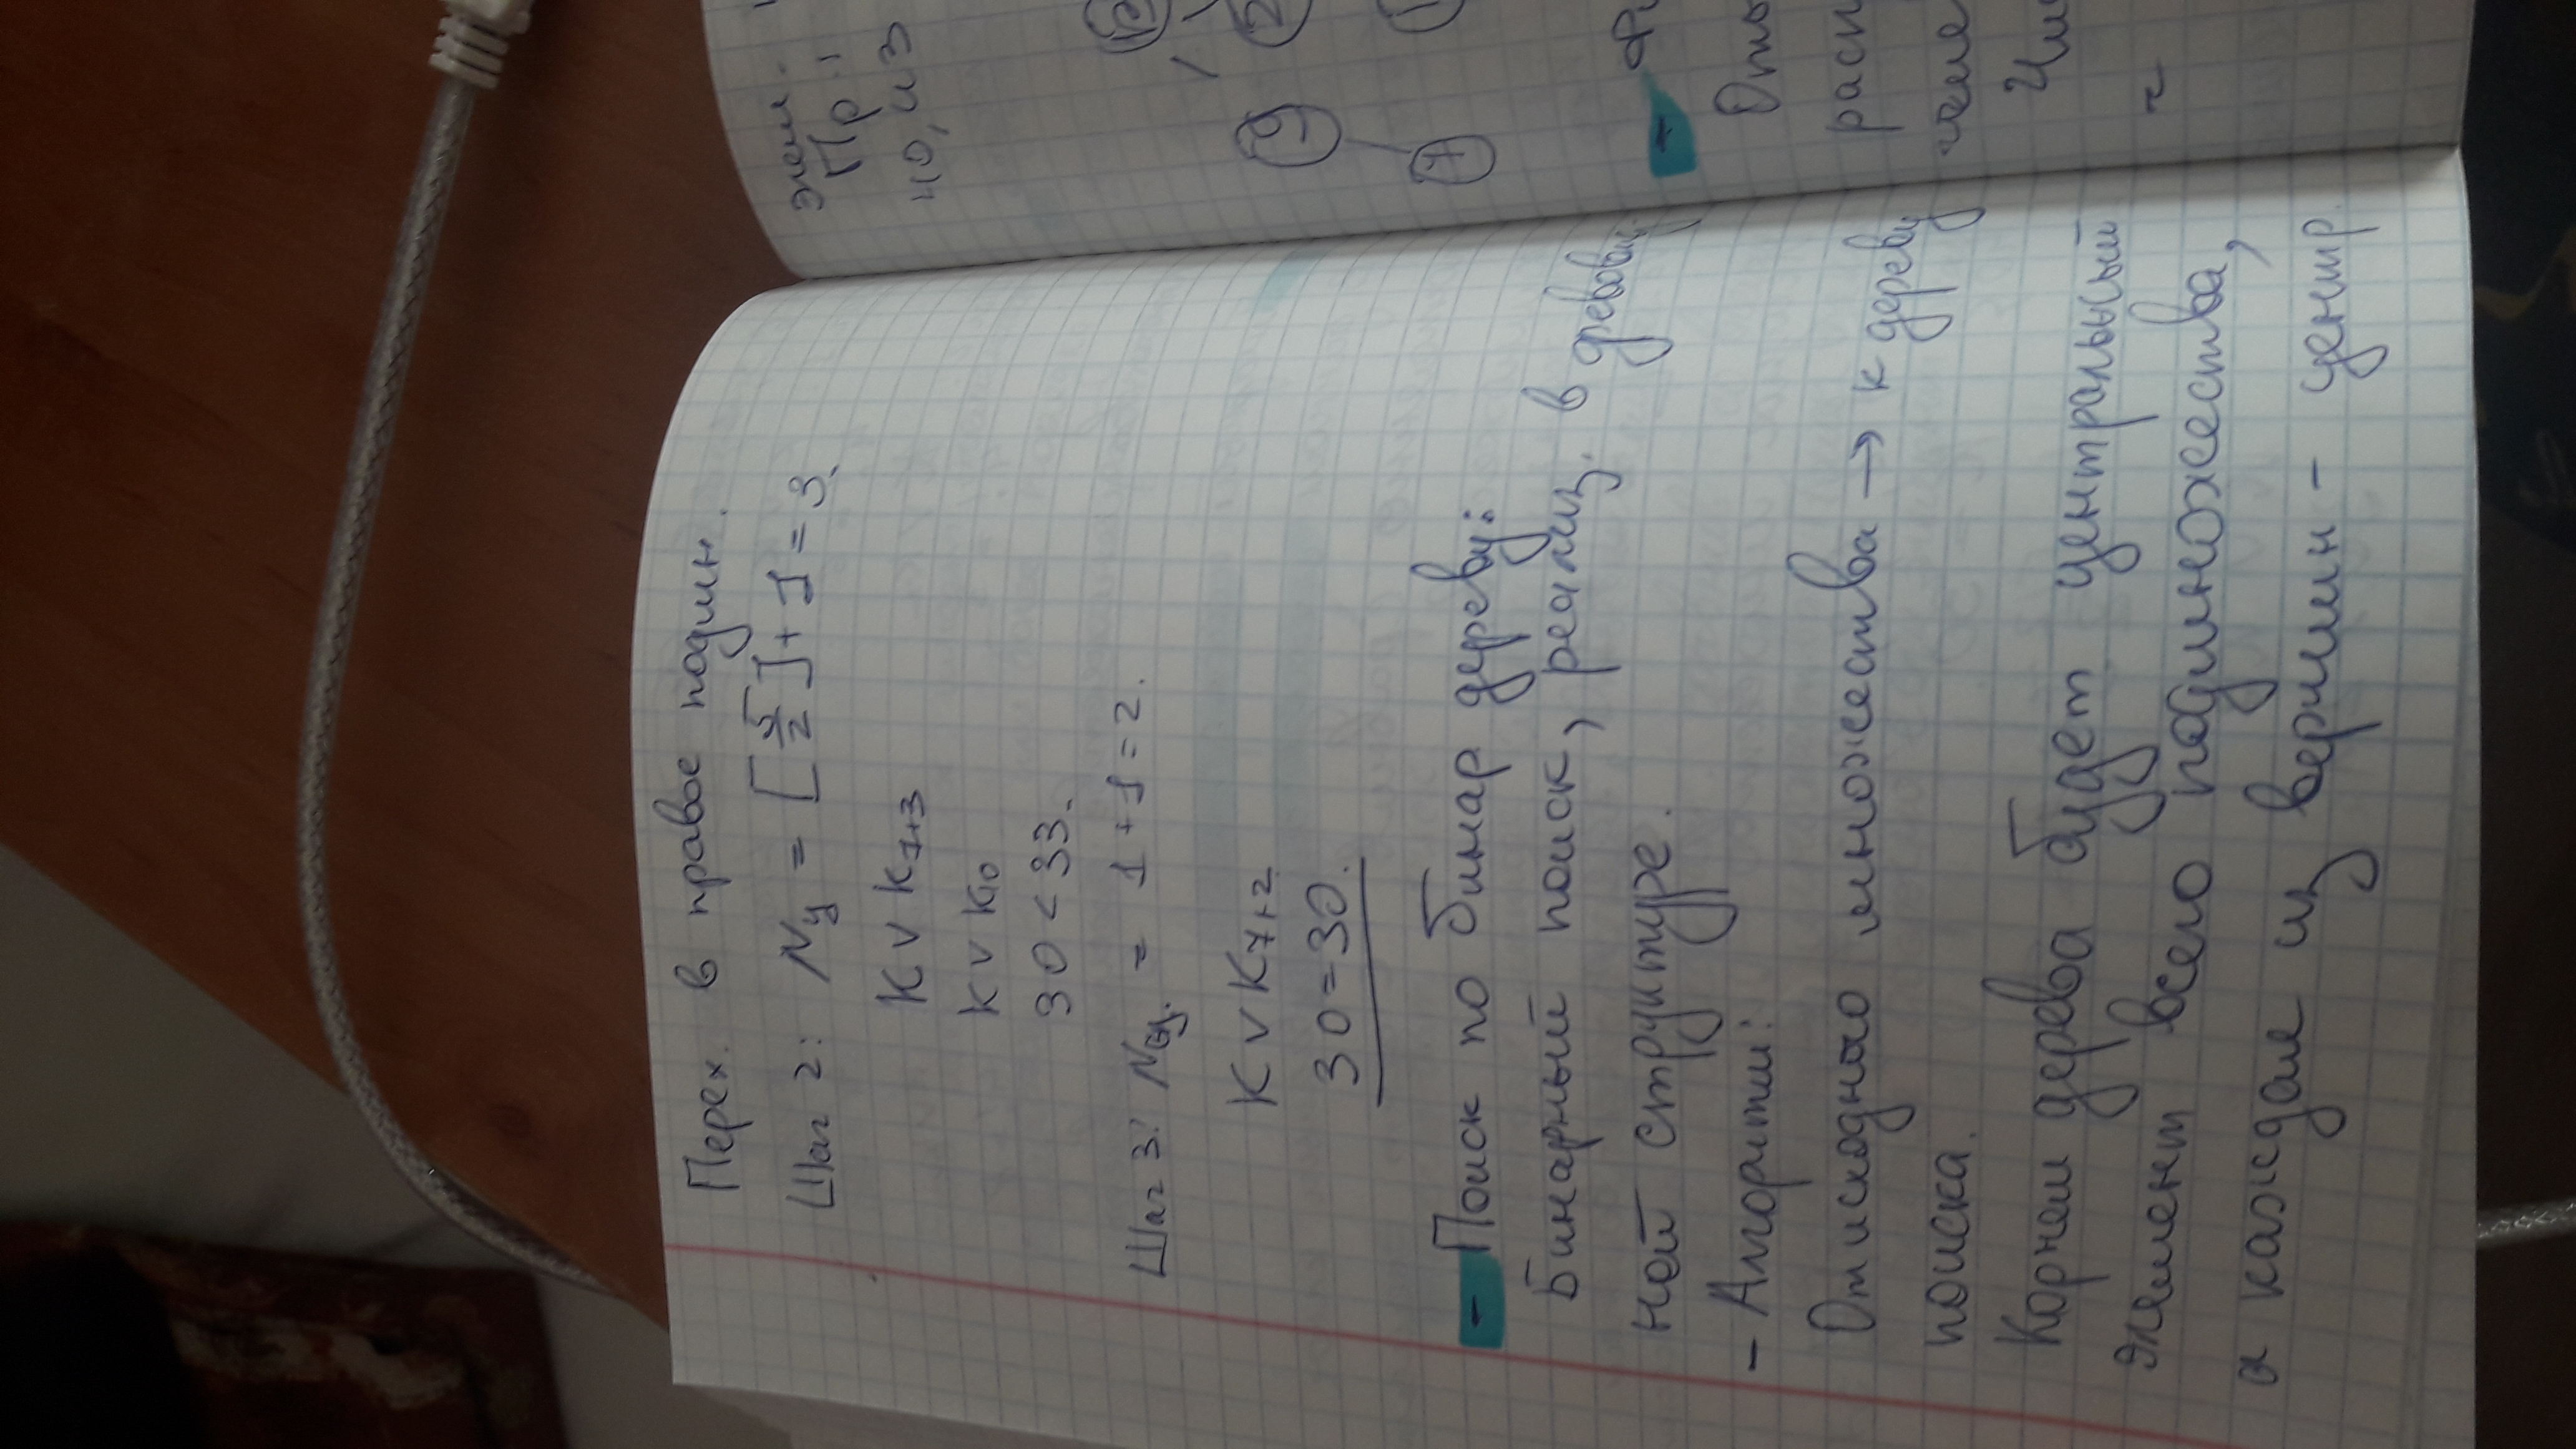 Перех. в правое подмн.
Шаг 2: Nц = [5/2] + 1 = 3.
K v K7+3
K v K10
30 < 33.
Шаг 3: Nц. = 1 + 1 = 2.
K v K7+2
30 = 30.
- Поиск по бинар дереву:
Бинарный поиск, реализ. в древовид-
ной структуре.
- Алгоритм:
От исходного множества → к дереву
поиска.
Корнем дерева будет центральный
элемент всего подмножества,
а каждая из вершин - центр.
элем.
Пр.:
40, из
9
7